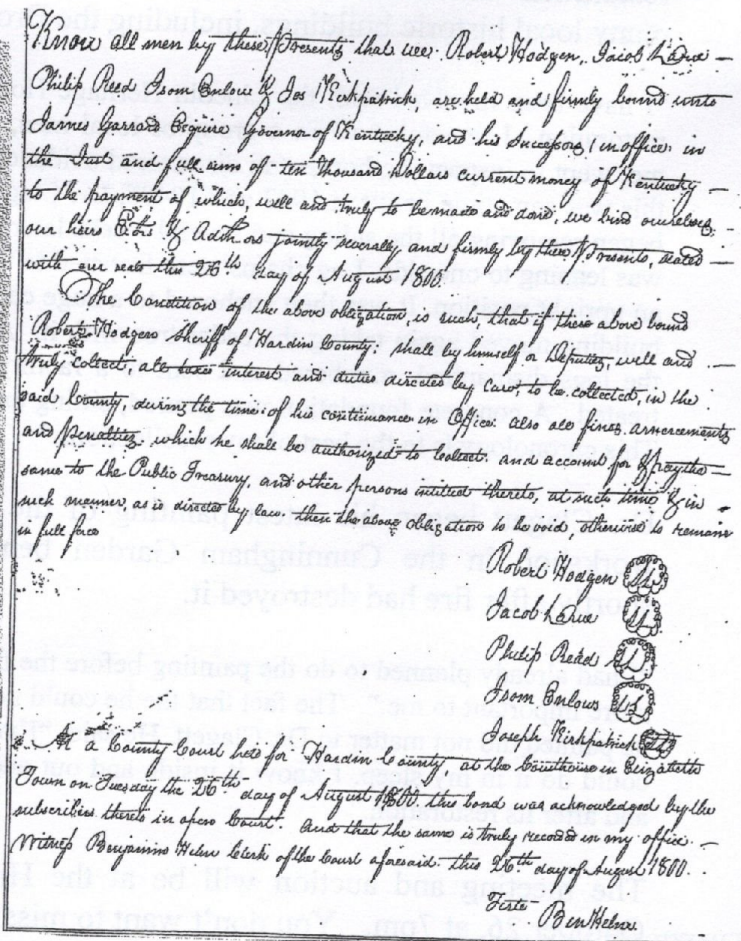 Know all men by these Presents that wee Robert Hodgen, Jacob LaRue –
Philip Reed Isom Enlow & Jos Kirkpatrick, are held and firmly bound unto
James Garrard Esquire Governor of Kentucky, and his Successors in office in
the Just and full sum of ten thousand Dollars current money of Kentucky –
to the payment of which, well and truly to be made and done, we bind ourselves
our heirs Exors & Adm.ors jointly severally and firmly by these Presents, sealed –
with our seals this 26th day of August 1800.
The Condition of the above obligation is such, that if the above bound
Robert Hodgens Sheriff of Hardin County: shall by himself or Deputies, well and –
truly collect, all taxes interest and duties directed by law, to be collected, in the
said County, during the time of his continuance in Office. also all fines, amercements
and Penalties, which he shall be authorized to Collect. and account for & pay the –
same to the Public Treasury, and other persons intitled thereto, at such time & in
such manner, as is directed by law, then the above obligation to be void, otherwise to remain
in full force
Robert Hodgen
Jacob LaRue
Philip Reed
Isom Enlows
Joseph Kirkpatrick
At a County Court held for Hardin County at the Courthouse in Elizabeth
Town on Tuesday the 26th day of August 1800. this bond was acknowledged by the
subscribers thereto in open Court. And that the same is truly recorded in my office. –
Witness Benjamin Helm Clerk of the Court aforesaid this 26th day of August 1800.
Teste
Ben Helm